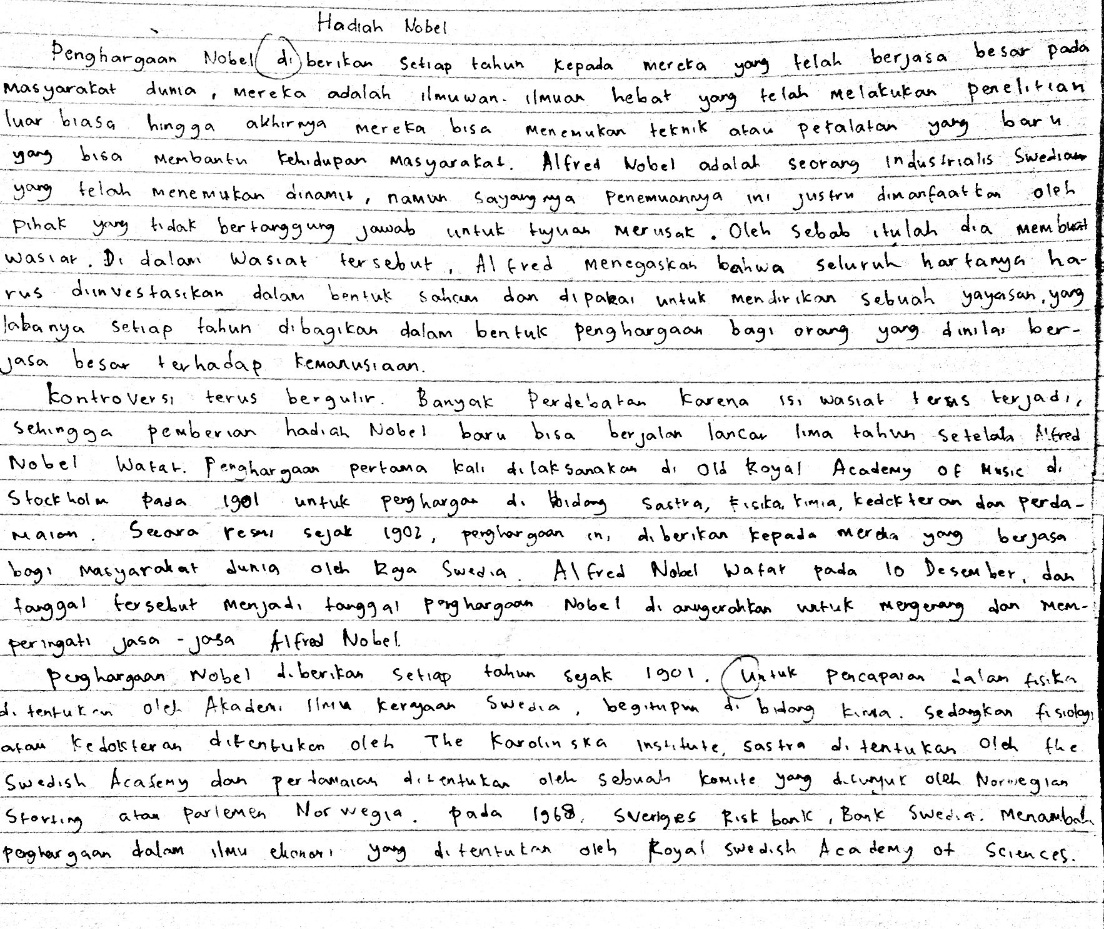 Hadiah Nobel
Penghargaan Nobel diberikan setiap tahun kepada mereka yang telah berjasa besar pada
masyarakat dunia, mereka adalah ilmuwan-ilmuan hebat yang telah melakukan penelitian
luar biasa hingga akhirnya mereka bisa menemukan teknik atau petalatan yang baru
yang bisa membantu kehidupan masyarakat. Alfred Nobel adalah seorang industrialis Swedia
yang telah menemukan dinamit, namun sayangnya penemuannya ini justru dimanfaatkan oleh
pihak yang tidak bertanggung jawab untuk tujuan merusak. Oleh sebab itulah dia membuat
wasiat. Di dalam wasiat tersebut, Alfred menegaskan bahwa seluruh hartanya ha-
rus diinvestasikan dalam bentuk saham dan dipakai untuk mendirikan sebuah yayasan, yang
labanya setiap tahun dibagikan dalam bentuk penghargaan bagi orang yang dinilai ber-
jasa besar terhadap kemanusiaan.
Kontroversi terus bergulir. Banyak Perdebatan karena isi wasiat terus terjadi,
sehingga pemberian hadiah Nobel baru bisa berjalan lancar lima tahun setelah Alfred
Nobel Wafat. Penghargaan pertama kali dilaksanakan di Old Royal Academy of Music di
Stockholm pada 1901 untuk penghargaan di bidang Sastra, Fisika, Kimia, kedokteran dan perda-
maian. Secara resmi sejak 1902, penghargaan ini diberikan kepada mereka yang berjasa
bagi masyarakat dunia oleh Raja Swedia. Alfred Nobel Wafat pada 10 Desember, dan
tanggal tersebut menjadi tanggal penghargaan Nobel di anugerahkan untuk mengenang dan mem-
peringati jasa-jasa Alfred Nobel.
Penghargaan Nobel diberikan setiap tahun sejak 1901. Untuk pencapaian dalam fisika
ditentukan oleh Akademi Ilmu kerajaan Swedia, begitupun di bidang kimia. Sedangkan fisiologi
atau kedokteran ditentukan oleh The Karolinska Institute, sastra ditentukan oleh the
Swedish Academy dan perdamaian ditentukan oleh sebuah komite yang ditunjuk oleh Norwegian
Storting atau parlemen Norwegia. Pada 1968, Sveriges Riskbank, Bank Swedia. Menambah
penghargaan dalam ilmu ekonomi yang ditentukan oleh Royal Swedish Academy of Sciences.